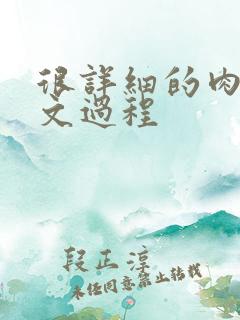 很詳細的肉
文過程
段正淳
未经同意禁止转载